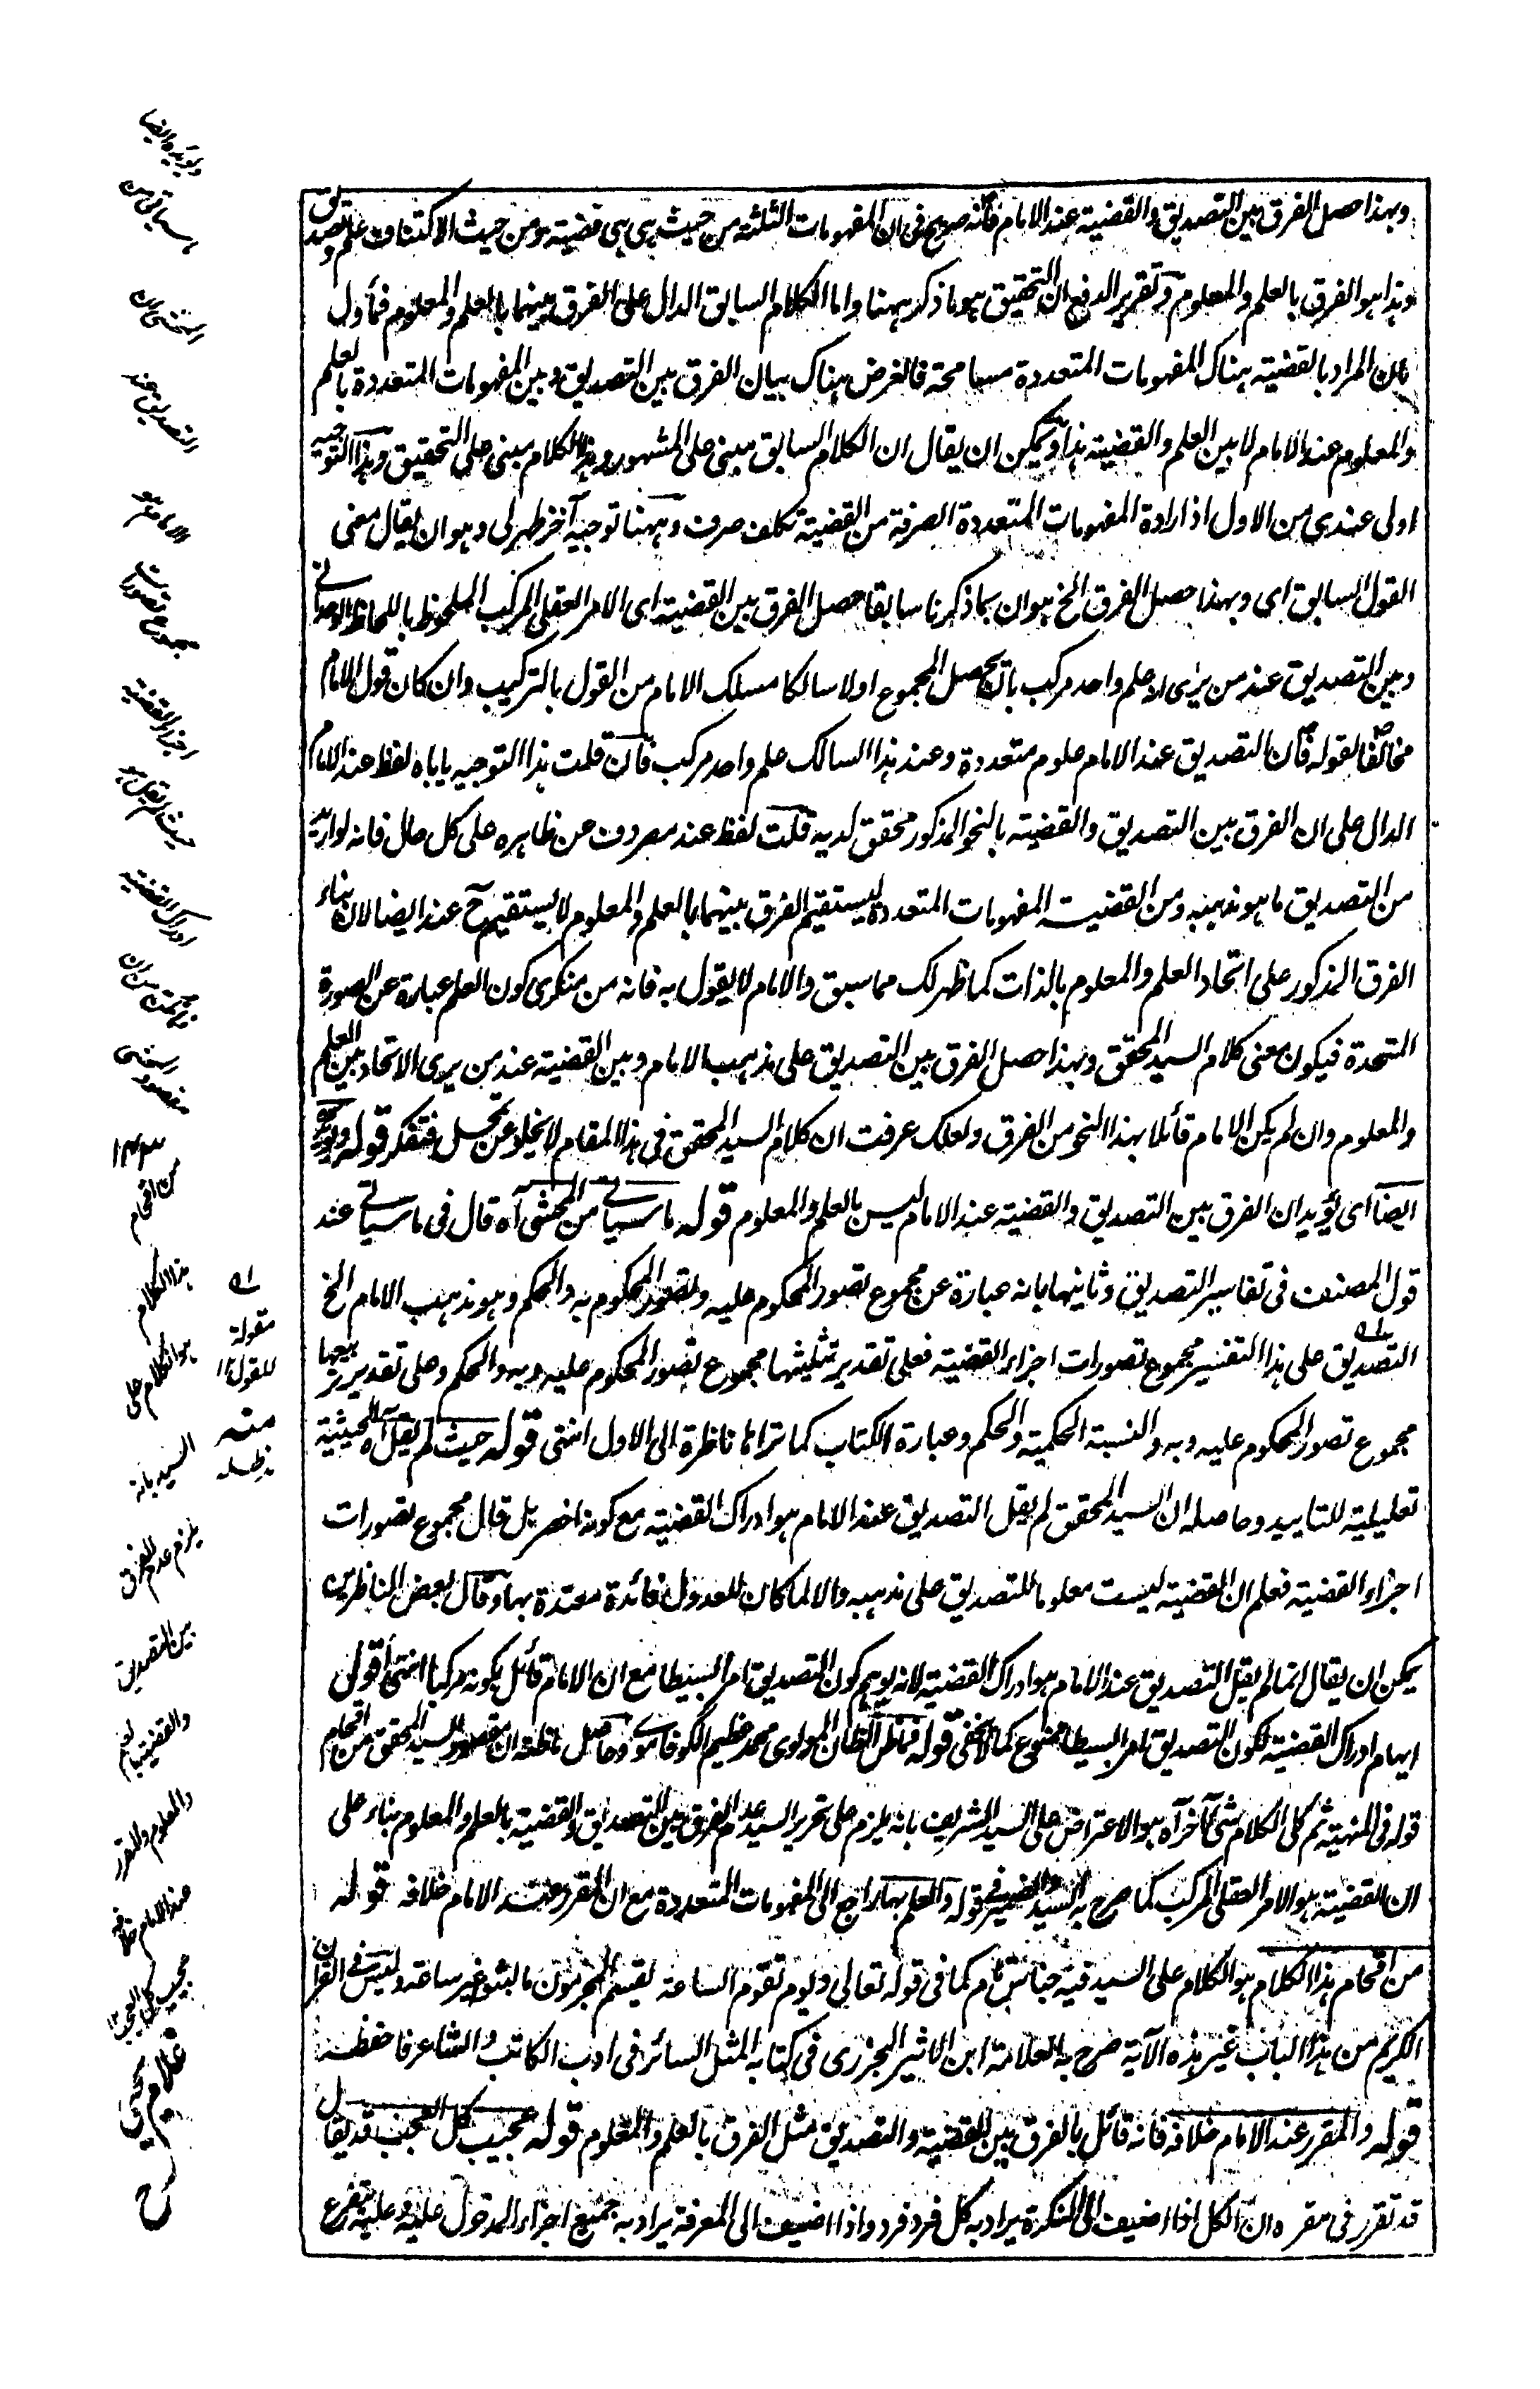 وبهذا حصل الفرق بين التصديق والقضية عند الامام فانه صريح فى ان المفهومات الثلثة من حيث هى هى قضية ومن حيث الاكتناف علم وتصديق
وهذا هو الفرق بالعلم والمعلوم وتقرير الدفع ان التحقيق هو ما ذكر ههنا واما الكلام السابق الدال على الفرق بينهما بالعلم والمعلوم فمأول
بان المراد بالقضية هناك المفهومات المتعددة مسامحة فالغرض هناك بيان الفرق بين التصديق وبين المفهومات المتعددة بالعلم
والمعلوم عند الامام لا بين العلم والقضية هذا ويمكن ان يقال ان الكلام السابق مبنى على المشهور وهذا الكلام مبنى على التحقيق وهذا التوجيه
اولى عندى من الاول اذ ارادة المفهومات المتعددة الصرفة من القضية تكلف صرف وههنا توجيه آخر ظهر لى وهو ان يقال معنى
القول السابق اى وبهذا حصل الفرق الخ هو ان بما ذكرنا سابقا حصل الفرق بين القضية اى الامر العقلى المركب الملحوظ باللحاظ الوحدانى
وبين التصديق عند من يرى انه علم واحد مركب بان يحصل المجموع اولا سالكا مسلك الامام من القول بالتركيب وان كان قول الامام
مخالفا لقوله فان التصديق عند الامام علوم متعددة وعند هذا السالك علم واحد مركب فان قلت هذا التوجيه ياباه لفظ عند الامام
الدال على ان الفرق بين التصديق والقضية بالنحو المذكور محقق لديه قلت لفظ عند مصروف عن ظاهره على كل حال فانه لو اريد
من التصديق ما هو مذهبه ومن القضية المفهومات المتعددة ليستقيم الفرق بينهما بالعلم والمعلوم لا يستقيم ح عند ايضا لان بناء
الفرق المذكور على اتحاد العلم والمعلوم بالذات كما ظهر لك مما سبق والامام لا يقول به فانه من منكرى كون العلم عبارة عن الصورة
المتحدة فيكون معنى كلام السيد المحقق وبهذا حصل الفرق بين التصديق على مذهب الامام وبين القضية عند من يرى الاتحاد بين العلم
والمعلوم وان لم يكن الامام قائلا بهذا النحو من الفرق ولعلك عرفت ان كلام السيد المحقق فى هذا المقام لا يخلو عن تمحل فتفكر قوله ويؤيده
ايضا اى يؤيد ان الفرق بين التصديق والقضية عند الامام ليس بالعلم والمعلوم قوله ما سياتى من المحشى آه قال فى ما سياتى عند
قول المصنف فى تفاسير التصديق وثانيها بانه عبارة عن مجموع تصور المحكوم عليه وتصور المحكوم به والحكم وهو مذهب الامام الخ
التصديق على هذا التفسير مجموع تصورات اجزاء القضية فعلى تقدير تثليثها مجموع تصور المحكوم عليه وبه والحكم وعلى تقدير تربيعها
مجموع تصور المحكوم عليه وبه والنسبة الحكمية والحكم وعبارة الكتاب كما تراها ناظرة الى الاول انتهى قوله حيث لم يقل آه الحيثية
تعليلية للتاييد وحاصله ان السيد المحقق لم يقل التصديق عند الامام هو ادراك القضية مع كونه اخصر بل قال مجموع تصورات
اجزاء القضية فعلم ان القضية ليست معلوما للتصديق على مذهبه والا لما كان للعدول فائدة معتدة بها وقال بعض الناظرين
يمكن ان يقال انما لم يقل التصديق عند الامام هو ادراك القضية لانه يوهم كون التصديق امرا بسيطا مع ان الامام قائل بكونه مركبا انتهى اقول
ايهام ادراك القضية لكون التصديق امرا بسيطا ممنوع كما لا يخفى قوله فما ظن الظان المولوى محمد عظيم الگوفاموى وحاصل ما ظنه ان مقصود السيد المحقق من اقحام
قوله فى المنهية ثم على الكلام شئ آخر آه هو الاعتراض على السيد الشريف بانه يلزم على تحرير السيد عدم الفرق بين التصديق والقضية بالعلم والمعلوم بناء على
ان القضية هو الامر العقلى المركب كما صرح به السيد والضمير فى قوله والعلم بها راجع الى المفهومات المتعددة مع ان المقرر عند الامام خلافه قوله
من اقحام هذا الكلام هو الكلام على السيد فيه جناس تام كما فى قوله تعالى ويوم تقوم الساعة يقسم المجرمون ما لبثوا غير ساعة وليس فى القرآن
الكريم من هذا الباب غير هذه الآية صرح به العلامة ابن الاثير الجزرى فى كتابه المثل السائر فى ادب الكاتب والشاعر فاحفظه
قوله والمقرر عند الامام خلافه فانه قائل بالفرق بين القضية والتصديق مثل الفرق بالعلم والمعلوم قوله عجيب كل العجب قد يقال
قد تقرر فى مقره ان الكل اذا اضيف الى النكرة يراد به كل فرد فرد واذا اضيف الى المعرفة يراد به جميع اجزاء المدخول عليه وعليه يتفرع
ويؤيده ايضا
ما سياتى من
المحشى ان
التصديق عند
الامام هو
مجموع تصورات
اجزاء القضية
حيث لم يقل هو
ادراك القضية
مقصود المحشى
من اقحام
هذا الكلام
هو الكلام على
السيد بانه
يلزم عدم الفرق
بين التصديق
والقضية بالعلم
والمعلوم والمقرر
عند الامام خلافه
عجيب كل العجب ١٢
غلام يحيى
رح
له
مقولة
للقول ١٢
منه
مد ظله